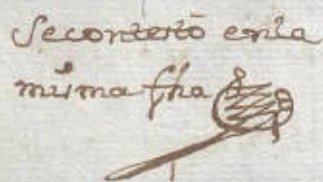 Se contextò en la
misma fha